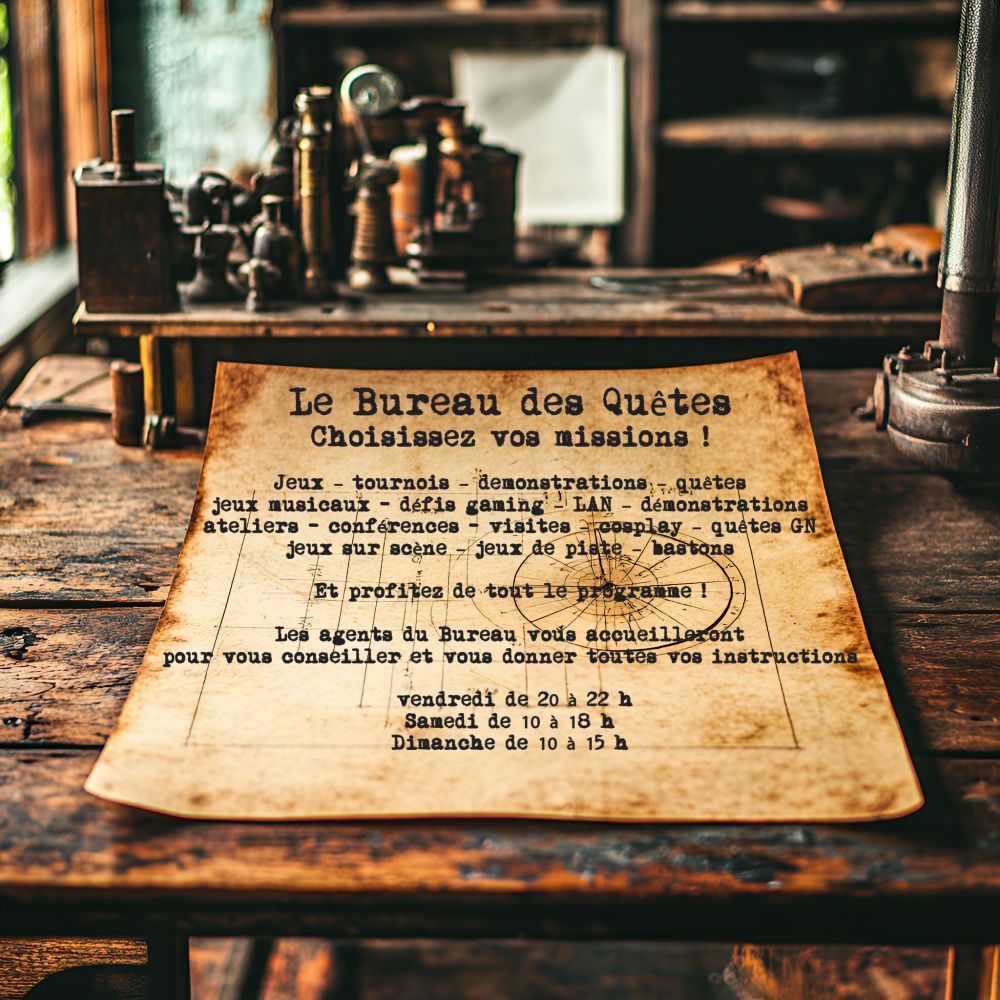 Le Bureau des Quêtes
Choisissez vos missions !
Jeux - tournois - demonstrations - quêtes
jeux musicaux - défis gaming - LAN - démonstrations
ateliers - conférences - visites - cosplay - quêtes GN
jeux sur scène - jeux de piste - bastons
Et profitez de tout le programme !
Les agents du Bureau vous accueilleront
pour vous conseiller et vous donner toutes vos instructions
vendredi de 20 à 22 h
Samedi de 10 à 18 h
Dimanche de 10 à 15 h